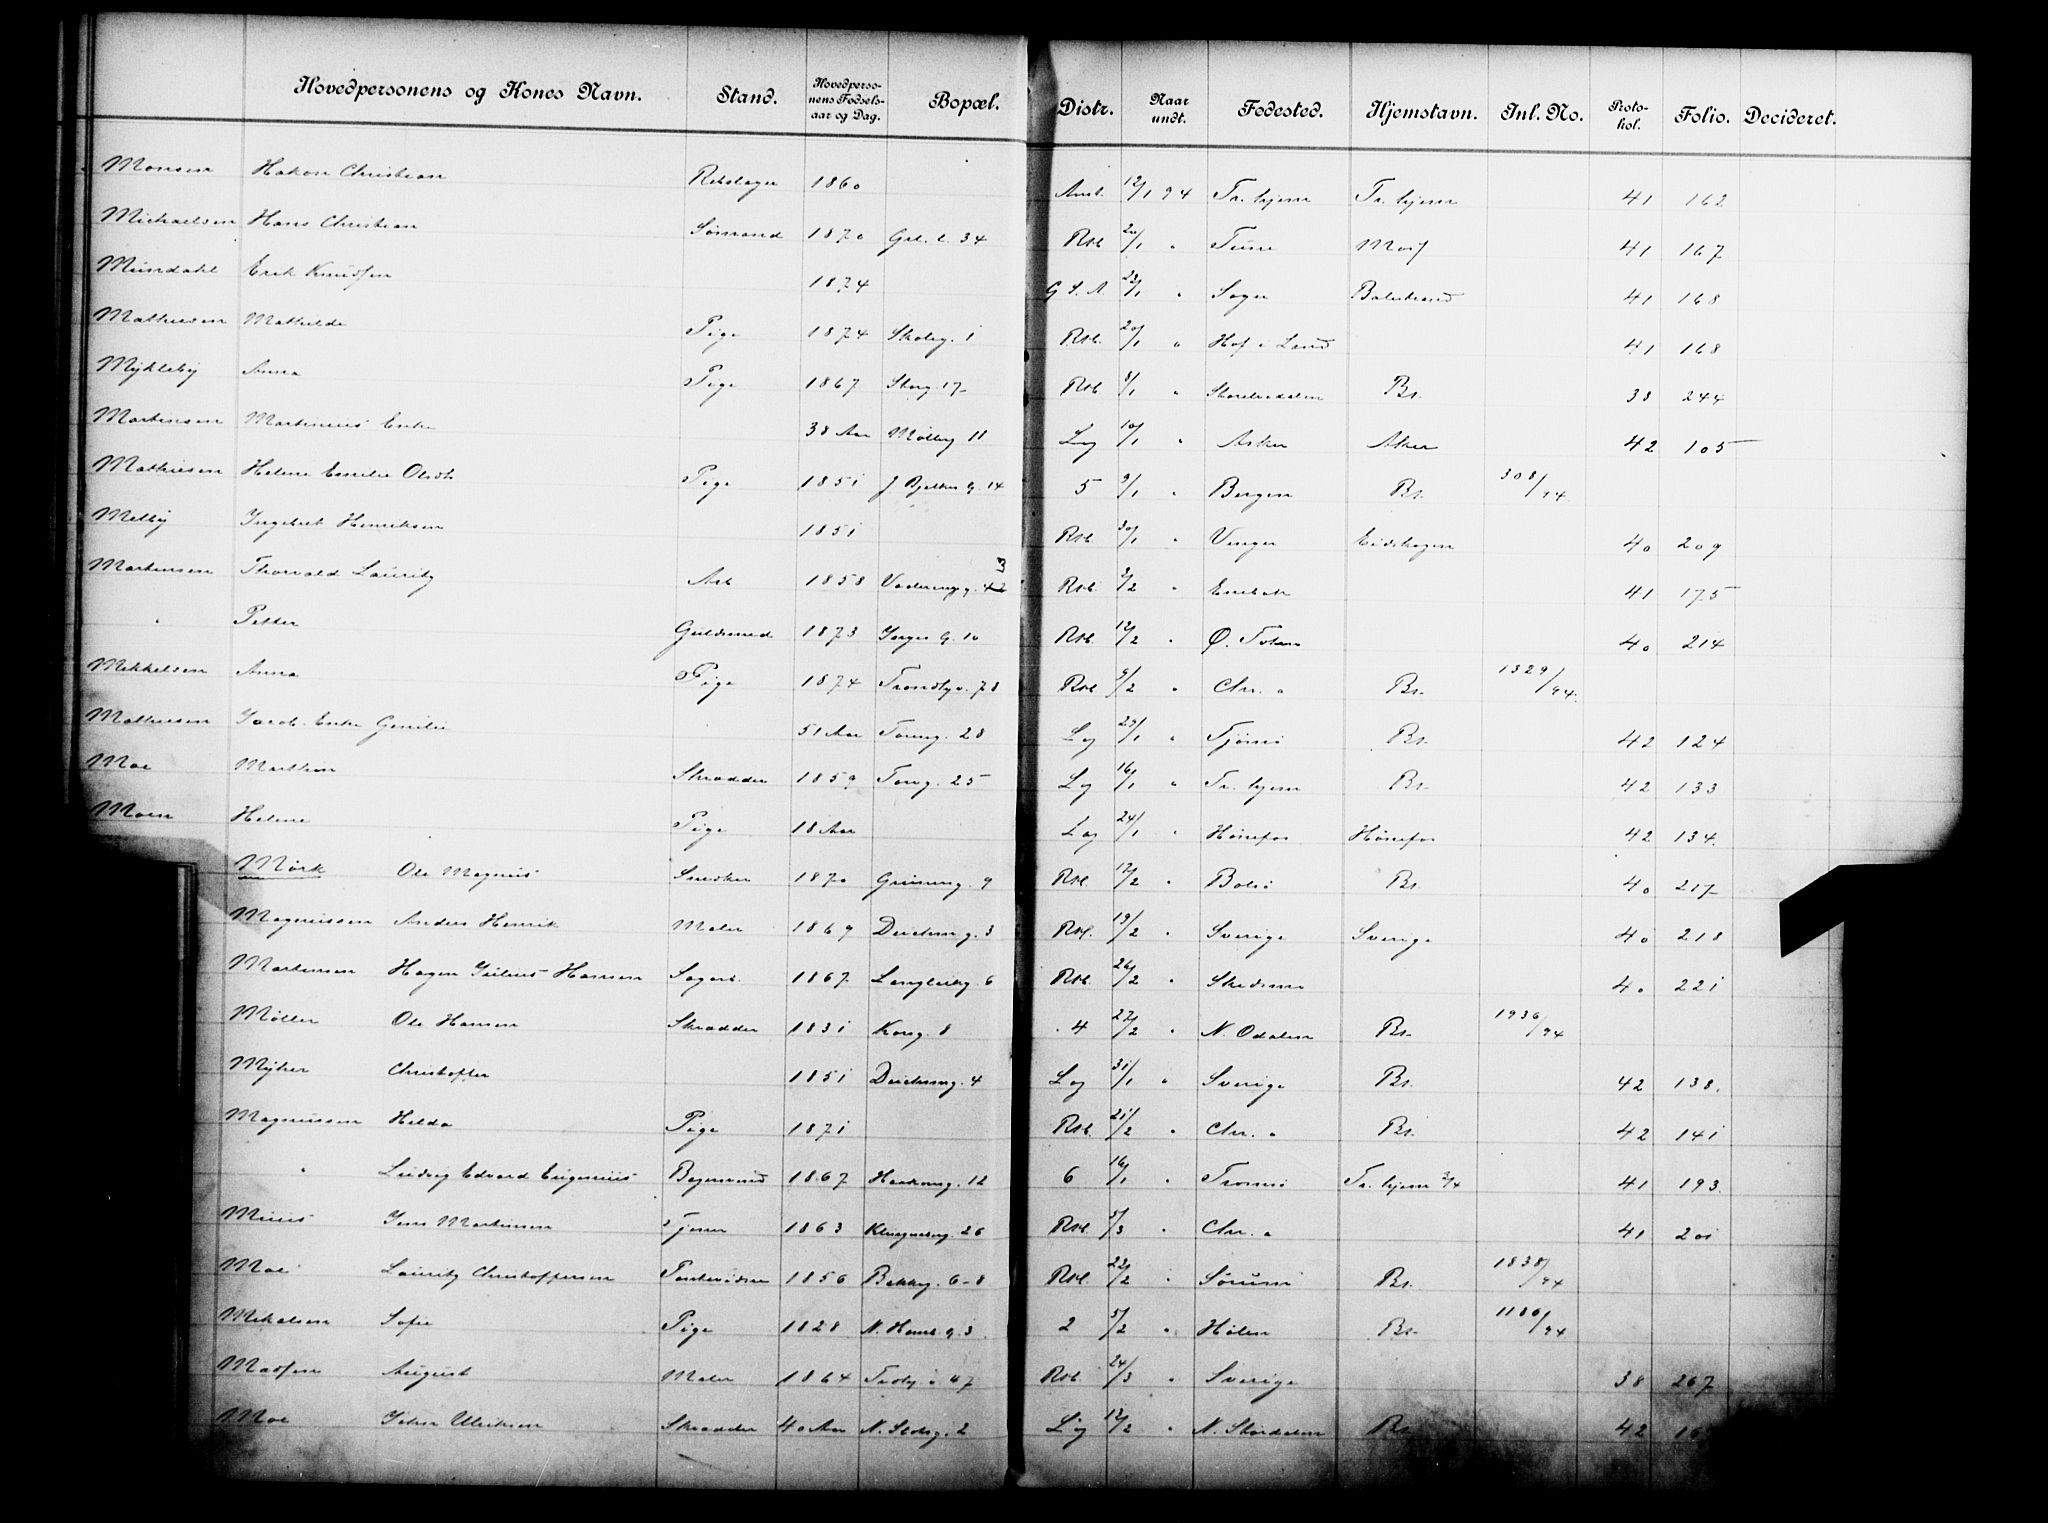 Hovedpersonens og Kones Navn. Stand. Hovedpersonens Fødselsaar og Dag. Bopæl. Distr. Naar undt. Fødested. Hjemstavn. Inl. No. Protokol. Folio. Decideret.
Monsen Hakon Christian Rebslager 1860 12/1 94 Tr.hjem Tr.hjem 41 162
Michaelsen Hans Christian Sømand 1870 Grl. l. 34 Rst. 20/1 " Tune Moss 41 167
Mundahl Erik Knudsen 1874 G S. A. 22/1 " Sogn Balestrand 41 168
Mathiesen Mathilde Pige 1874 Skoleg. 1 Rst. 20/1 " Hof Land 41 168
Mykleby Anna Pige 1867 Storg. 17 Rst. 8/1 " Storelvedalen Bs. 38 244
Martinsen Martinius Enke 38 Aar Mølleg 11 Lg 10/1 " Asker Aker 42 105
Mathiesen Helene Emilie Olsdt Pige 1851 J Bjelkes G. 14 5 9/1 " Bergen Bs. 308/94
Melby Ingebret Henriksen 1851 Rst. 30/1 " Vinger Eidskogen 40 209
Martinsen Thorvald Lauritz Arb 1858 Vaderengg. 3 Rst. 2/2 " Enebak 41 175
" Petter Guldsmed 1873 Inges G. 10 Rst. 12/2 " Ø. Toten 40 214
Mikkelsen Anna Pige 1874 Trondhjv. 78 Rst. 9/2 " Chr.a Bs. 1329/94.
Mathiesen Jacob Enke Gemilie 51 Aar Torvg. 28 Lg 29/1 " Tjømø Bs. 42 124
Moe Marthin Skrædder 1859 Torvg. 25 Lg 16/1 " Tr.hjem Bs. 42 133
Moen Helene Pige 18 Aar Lg 24/1 " Hønefos Hønefos 42 134.
Mørk Ole Magnus Snedker 1870 Grünerg. 9 Rst. 12/2 " Bolsø Bs. 40 217
Magnussen Anders Henrik Maler 1869 Deichmg. 3 Rst. 19/2 " Sverige Sverige 40 218
Martinsen Hagen Julius Hansen Sagarb. 1867. Langleikg. 6 Rst. 26/2 " Skedsmo 40 221
Møller Ole Hansen Skrædder 1831 Korsg. 8 4 27/2 " N. Odalen Bs. 1936/94
Myhrer Christoffer 1851 Deichmg. 4 Lg 31/1 " Sverige Bs. 42 138.
Magnussen Hilda Pige 1871 Rst. 21/2 " Chr.a Bs. 42 141
" Ludvig Edvard Eugenius Bogersvend 1867 Hackonsg. 12 6 16/1 " Tromsø Tr.hjem 41 193.
Muus Jens Martinsen Tjener 1863 Klingenberg. 26 Rst. 5/3 " Chr.a 41 201
Moe Lauritz Christoffersen 1856 Bakkeg. 6-8 Rst. 22/2 " Sørum Bs. 1838/94
Mikalsen Sofie Pige 1828 N. Hamb g. 3 2 5/2 " Hølen Bs. 1186/94
Madsen August Maler 1864 47 Rst. 24/3 " Sverige 38 267
Moe John Ulriksen Skrædder 40 Aar N. Slotsg. 2 Lg 12/2 " N. Stordalen Bs. 42